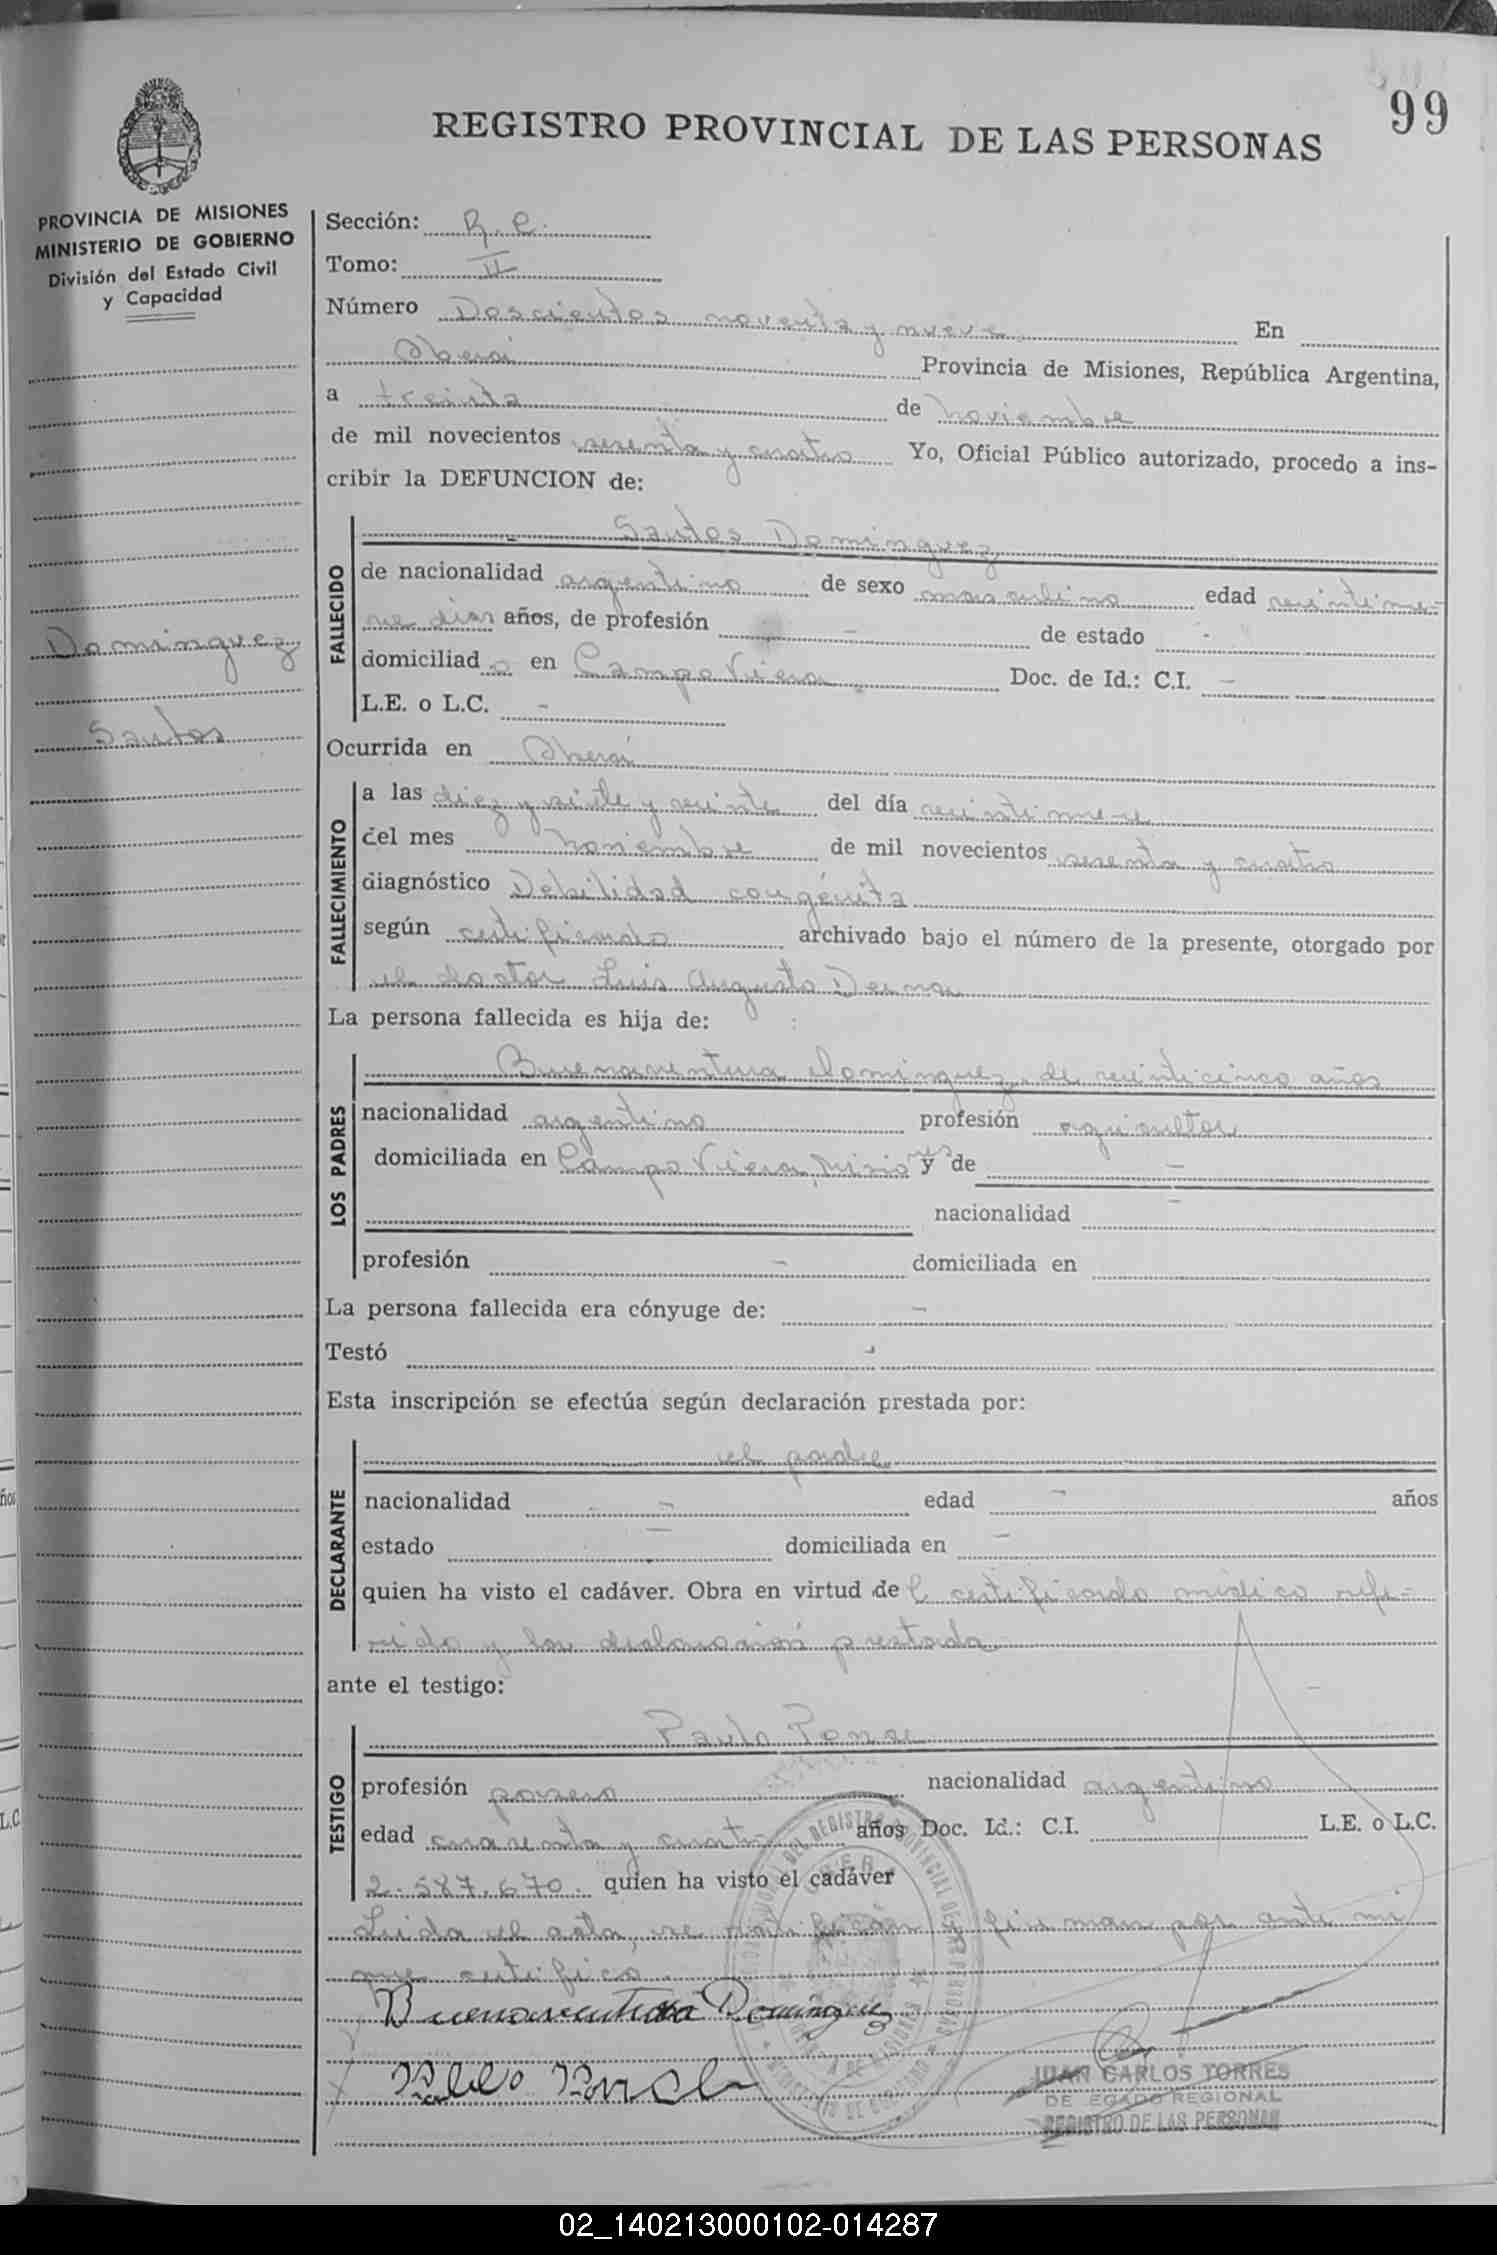 99
REGISTRO PROVINCIAL DE LAS PERSONAS
PROVINCIA DE MISIONES
MINISTERIO DE GOBIERNO
División del Estado Civil
y Capacidad
Dominguez
Santos
Sección: R. C.
Tomo: II
Número Doscientos noventa y nueve En
Oberá Provincia de Misiones, República Argentina,
a treinta de noviembre
de mil novecientos sesenta y cuatro Yo, Oficial Público autorizado, procedo a ins-
cribir la DEFUNCION de:
FALLECIDO
Santos Dominguez
de nacionalidad argentino de sexo masculino edad veintinue-
ve dias años, de profesión - de estado -
domiciliad o en Campo Viera Doc. de Id.: C.I. -
L.E. o L.C. -
Ocurrida en Oberá
FALLECIMIENTO
a las diez y siete y veinte del día veintinueve
del mes noviembre de mil novecientos sesenta y cuatro
diagnóstico Debilidad congénita
según certificado archivado bajo el número de la presente, otorgado por
el doctor Luis Augusto
La persona fallecida es hija de:
LOS PADRES
Buenaventura Dominguez, de veinticinco años
nacionalidad argentino profesión agricultor
domiciliada en Campo Viera, Misiones y de -
nacionalidad -
profesión - domiciliada en
La persona fallecida era cónyuge de: -
Testó -
Esta inscripción se efectúa según declaración prestada por:
DECLARANTE
el padre
nacionalidad - edad - años
estado - domiciliada en -
quien ha visto el cadáver. Obra en virtud de l certificado médico refe-
rido y la declaración prestada
ante el testigo:
TESTIGO
profesión nacionalidad argentino
edad cuarenta y cuatro años Doc. Id.: C.I. L.E. o L.C.
2.587.670. quien ha visto el cadáver
Leida el acta, se ratifican y firman por ante mi
que certifico.
Buenaventura Dominguez
JUAN CARLOS TORRES
DELEGADO REGIONAL
REGISTRO DE LAS PERSONAS
02_140213000102-014287